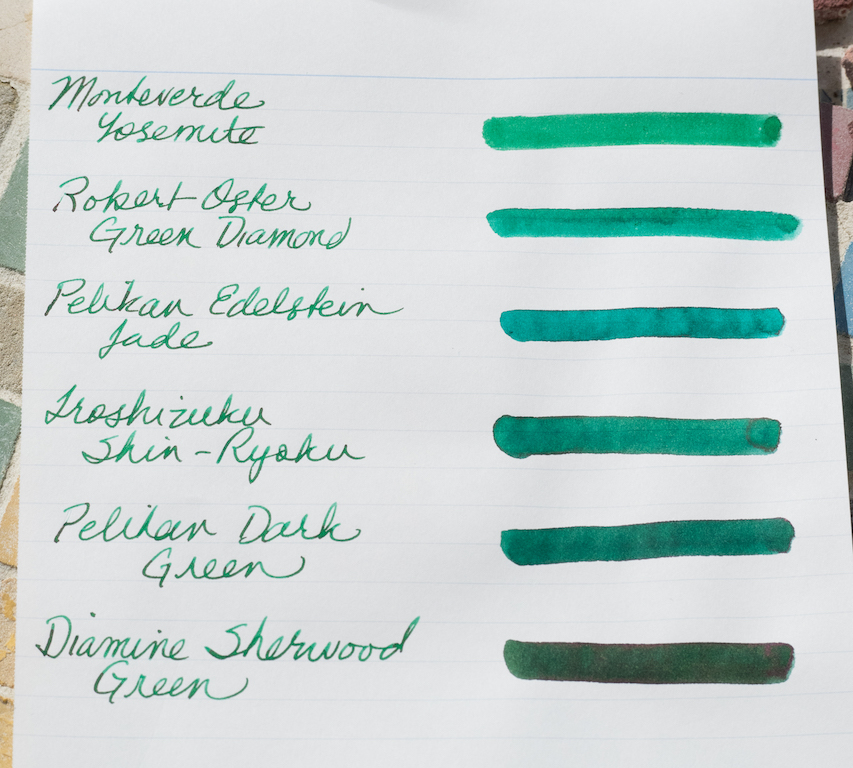 Monteverde
Yosemite
Robert Oster
Green Diamond
Pelikan Edelstein
Jade
Iroshizuku
Shin-Ryoku
Pelikan Dark
Green
Diamine Sherwood
Green